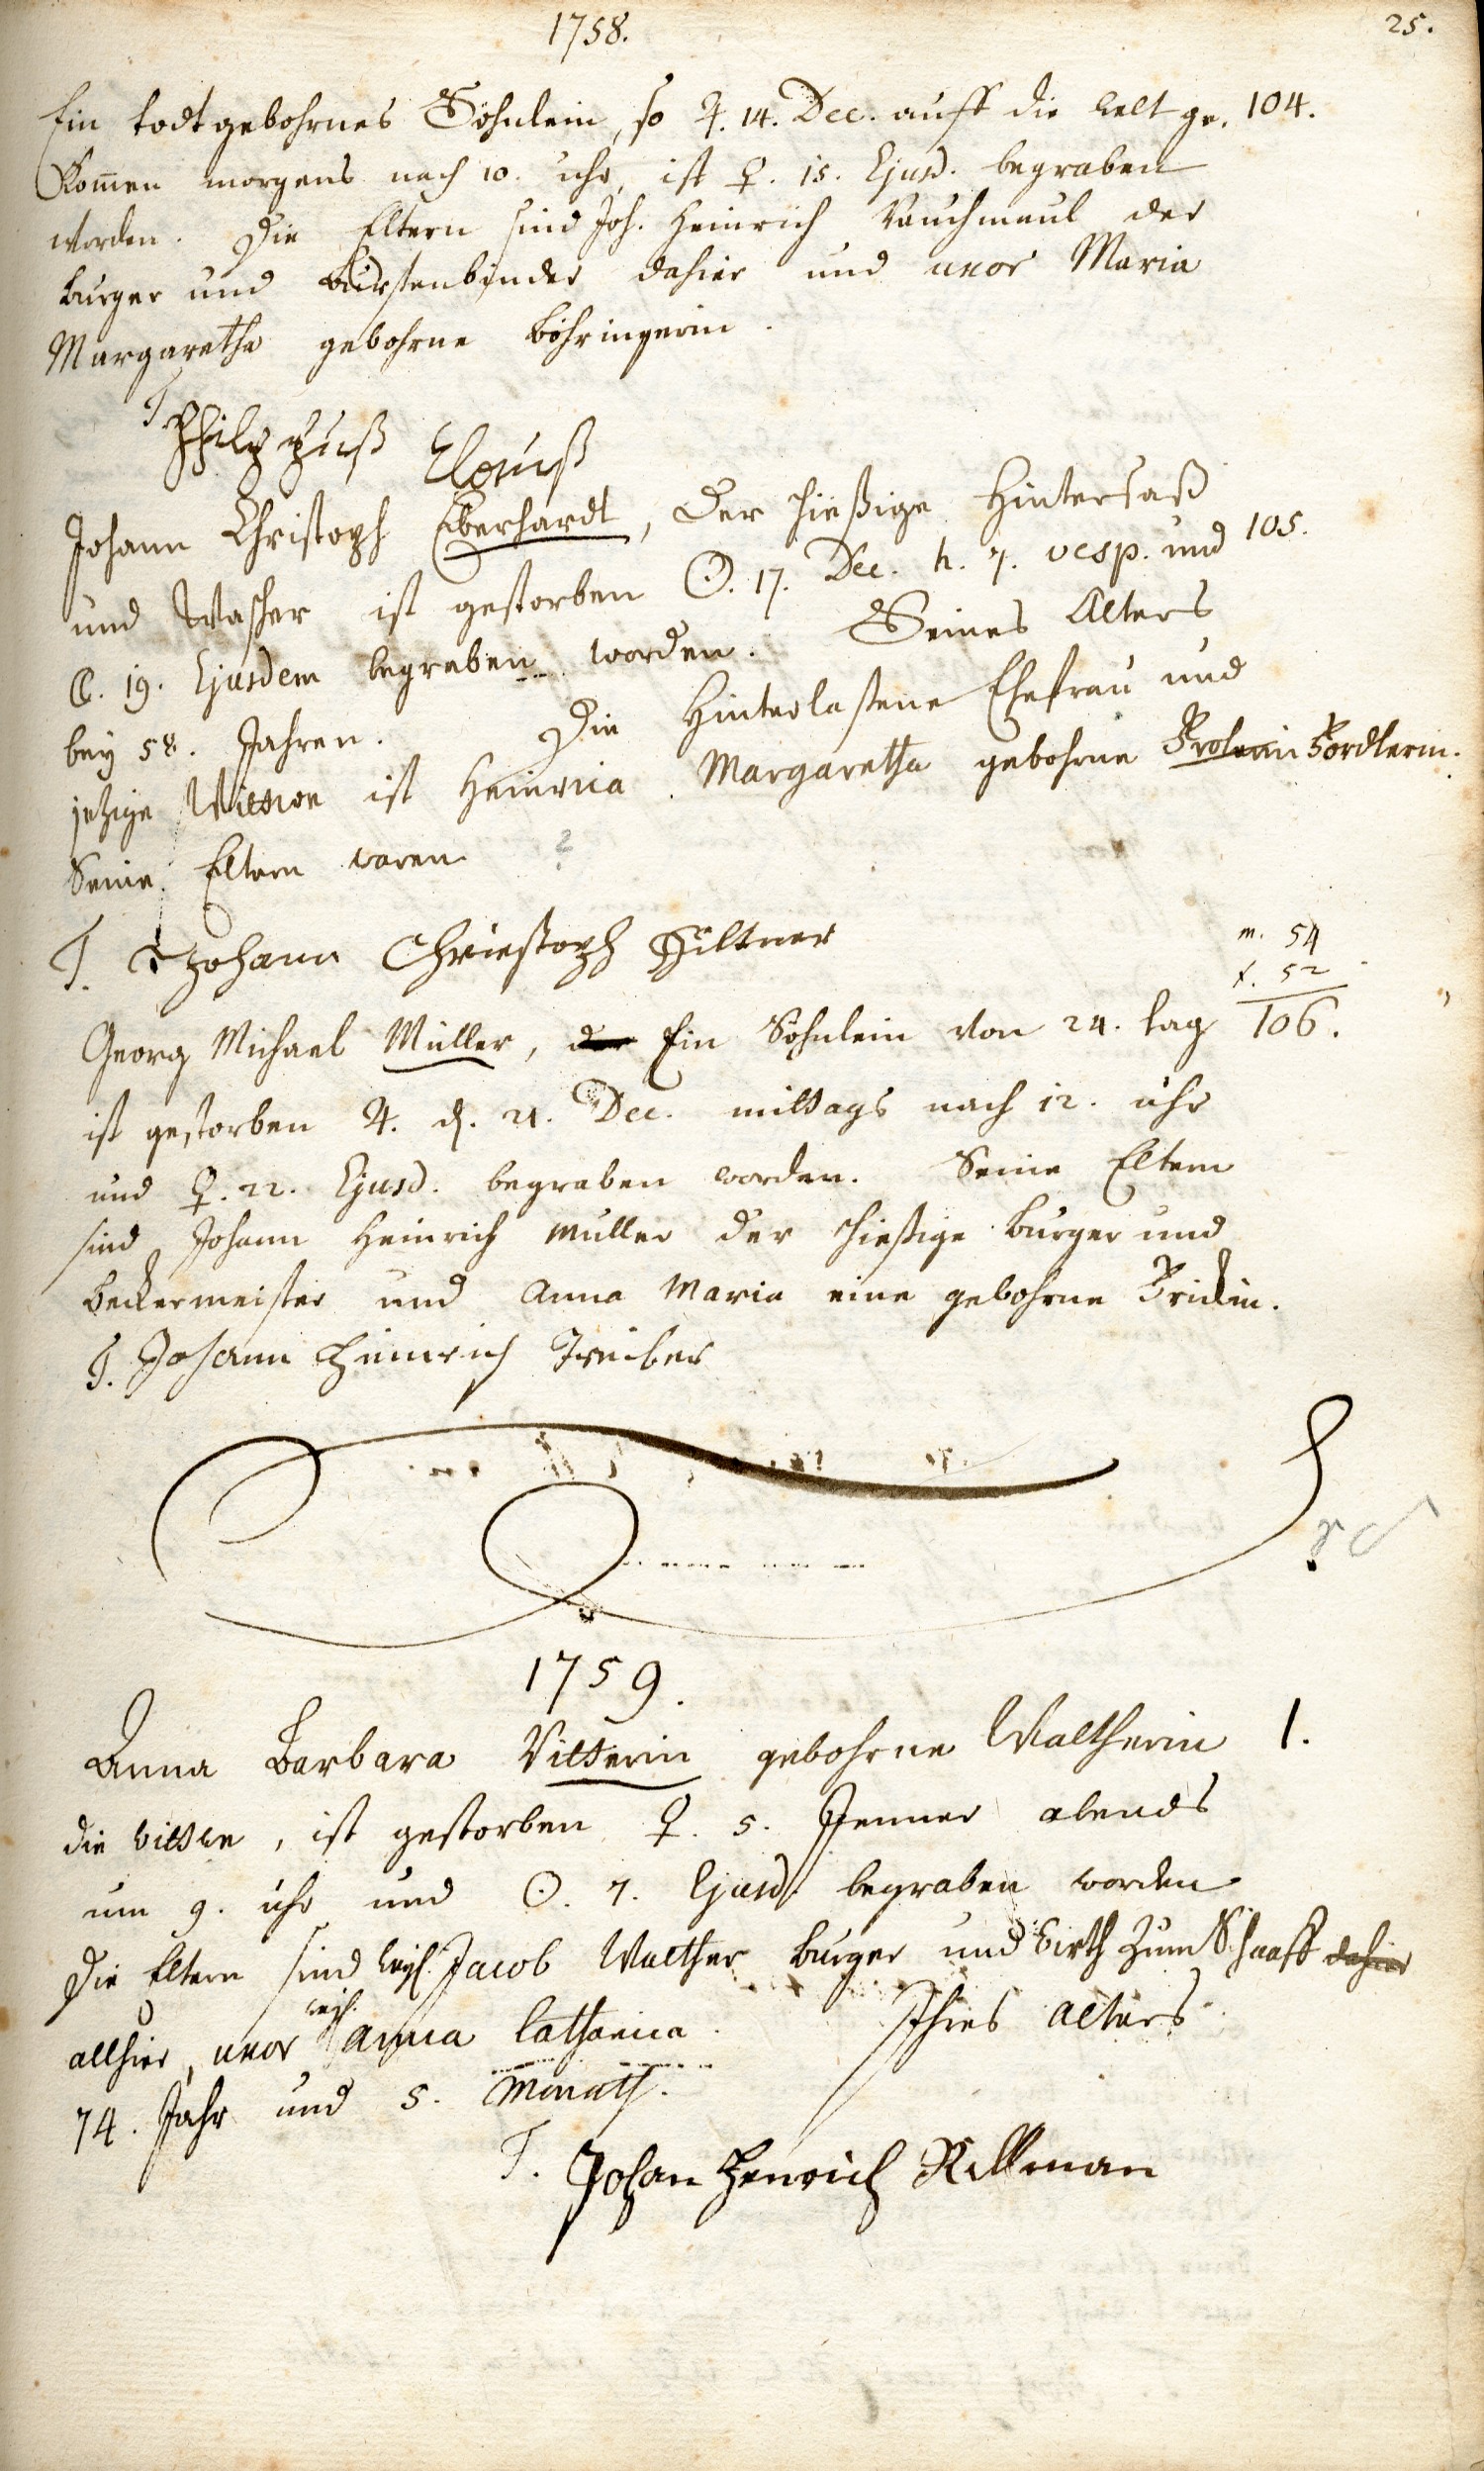 1758.
25.
Ein todtgebohrnes Söhnlein, so ♃. 14. Dec. auff die welt ge, 104.
kom̄en morgens nach 10. uhr, ist ♀. 15. Ejusd. begraben
worden. Die Eltern sind Joh. Heinrich Rauchmaul der
burger und bürstenbinder dahier und uxor Maria
Margaretha gebohrne böhringerin.
T
Johann Christoph Eberhardt, der hießige Hintersaß
und Wascher ist gestorben ☉. 17. Dec. h. 7. vesp. und 105.
19. Ejusdem begraben worden. Seines Alters
bey 58. Jahren. Die Hinterlaßene Ehefrau und
jetzige Wittwe ist Margaretha gebohrne Fordterin.
Seine Eltern waren ?
T. Johann Christoph Hiltner
m. 54
f. 52
Georg Michael Müller, der Ein Söhnlein von 24. tag 106.
ist gestorben ♃. d. 21. Dec. mittags nach 12. uhr
und ♀. 22. Ejusd. begraben worden. Seine Eltern
sind Johann Heinrich Müller der hießige burger und
beckermeister und Anna Maria eine gebohrne
T. Johann Heinrich Treiber
1759.
Anna Barbara Vitterin gebohrne Waltherin 1.
die wittwe, ist gestorben ♀. 5. Jenner abends
um 9. uhr und ☉. 7. Ejusd. begraben worden
Die Eltern sind weyl. Jacob Walther burger und wirth zum Schaaff dahier
weyl.
allhier, uxor Anna Catharina. Ihres alters
74. Jahr und 5. Monath.
T. Johan Henrich Rellman